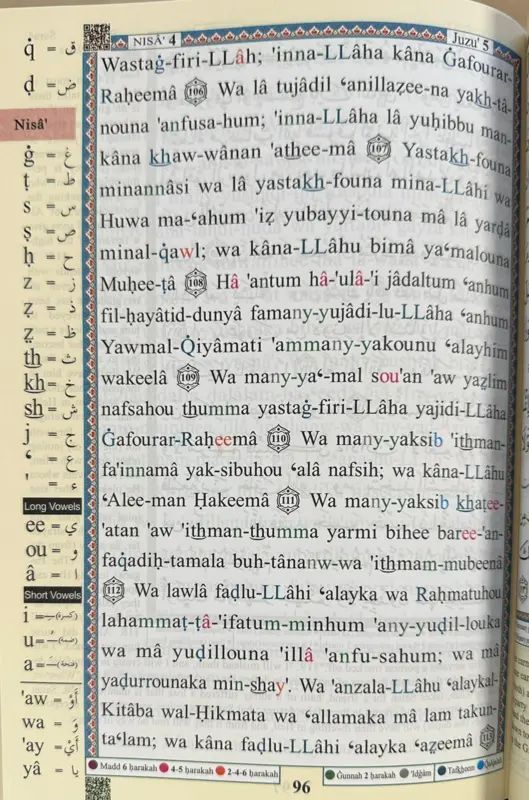 NISÂ' 4
Juzu' 5
Wastaġ-firi-LLâh; 'inna-LLâha kâna Ġafourar-
Raḥeemâ 106 Wa lâ tujâdil ʻanillaẓee-na yakh-tâ-
nouna 'anfusa-hum; 'inna-LLâha lâ yuḥibbu man-
kâna khaw-wânan 'athee-mâ 107 Yastakh-founa
minannâsi wa lâ yastakh-founa mina-LLâhi wa
Huwa ma-ʻahum 'iẓ yubayyi-touna mâ lâ yarḍâ
minal-q̇awl; wa kâna-LLâhu bimâ yaʻmalouna
Muḥee-ṭâ 108 Hâ 'antum hâ-'ulâ-'i jâdaltum ʻanhum
fil-ḥayâtid-dunyâ famany-yujâdi-lu-LLâha ʻanhum
Yawmal-Q̇iyâmati 'ammany-yakounu ʻalayhim
wakeelâ 109 Wa many-yaʻ-mal sou'an 'aw yaẓlim
nafsahou thumma yastaġ-firi-LLâha yajidi-LLâha
Ġafourar-Raḥeemâ 110 Wa many-yaksib 'ithman-
fa'innamâ yak-sibuhou ʻalâ nafsih; wa kâna-LLâhu
ʻAlee-man Ḥakeemâ 111 Wa many-yaksib khaṭee-
'atan 'aw 'ithman-thumma yarmi bihee baree-'an-
faq̇adiḥ-tamala buh-tânanw-wa 'ithmam-mubeenâ
112 Wa lawlâ faḍlu-LLâhi ʻalayka wa Raḥmatuhou
lahammaṭ-ṭâ-'ifatum-minhum 'any-yuḍil-louka
wa mâ yuḍillouna 'illâ 'anfu-sahum; wa mâ
yaḍurrounaka min-shay'. Wa 'anzala-LLâhu ʻalaykal-
Kitâba wal-Ḥikmata wa ʻallamaka mâ lam takun-
taʻlam; wa kâna faḍlu-LLâhi ʻalayka ʻaẓeemâ 113
Madd 6 ḥarakah 4-5 ḥarakah 2-4-6 ḥarakah Ġunnah 2 ḥarakah 'Idġâm Tafkheem Q̇alq̇alah
96
q̇ = ق
ḍ = ض
Nisâ'
ġ = غ
ṭ = ط
s = س
ṣ = ص
ḥ = ح
z = ز
ẓ = ذ
ẓ = ظ
th = ث
kh = خ
sh = ش
j = ج
ʻ = ع
' = ء
Long Vowels
ee = ي
ou = و
â = ا
Short Vowels
i = (كسرة)
u = (ضمة)
a = (فتحة)
'aw = أَوْ
wa = وَ
'ay = أَيْ
yâ = يا